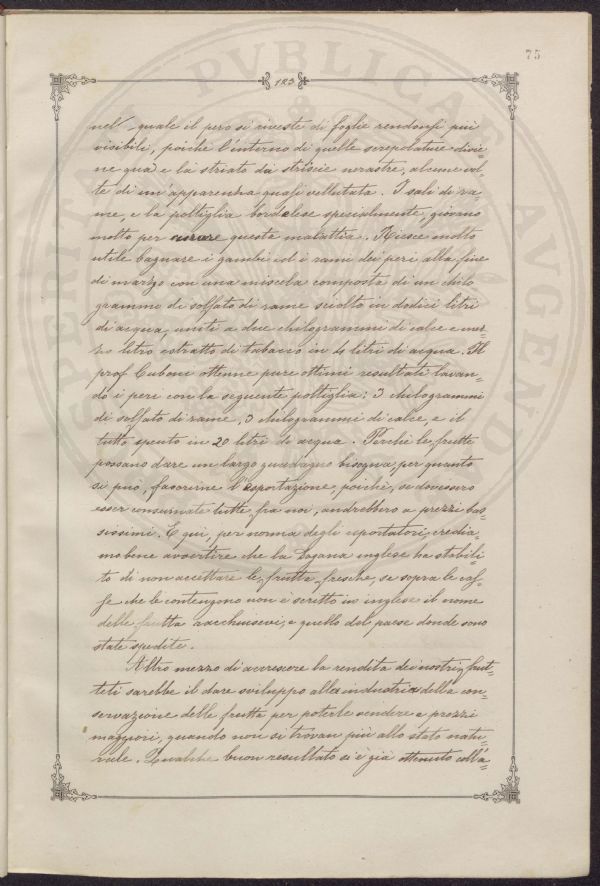 75
123
nel quale il pero si riveste di foglie rendonsi più
visibili, poichè l'interno di quelle screpolature divie=
ne qua e là striato da striscie nerastre, alcune vol=
te di un'apparenza quasi vellutata. I sali di ra=
me, e la poltiglia bordelese specialmente, giovano
molto per curare questa malattia. Riesce molto
utile bagnare i gambi ed i rami dei peri alla fine
di marzo con una miscela composta di un chilo
grammo di solfato di rame sciolto in dodici litri
di acqua, uniti a due chilogrammi di calce e mez=
zo litro estratto di tabacco in 4 litri di acqua. Il
prof Cuboni ottenne pure ottimi resultati lavan=
do i peri con la seguente poltiglia: 3 chilogrammi
di solfato di rame, 3 chilogrammi di calce, e il
tutto spento in 20 litri di acqua. Perchè le frutta
possano dare un largo guadagno bisogna, per quanto
si può, favorirne l'esportazione, poichè, se dovessero
esser consumate tutte fra noi, andrebbero a prezzi bas=
sissimi. E qui, per norma degli esportatori, credia=
mo bene avvertire che la Dogana inglese ha stabili=
to di non accettare le frutta fresche, se sopra le cas=
se che le contengono non è scritto in inglese il nome
delle frutta racchiusevi, e quello del paese donde sono
state spedite.
Altro mezzo di accrescere la rendita dei nostri frut=
teti sarebbe il dare sviluppo alla industria della con=
servazione delle frutta per poterle vendere a prezzi
maggiori, quando non si trovan più allo stato natu=
rale. Qualche buon resultato si è già ottenuto coll'a=
PVBLICAE
AVGENDAE